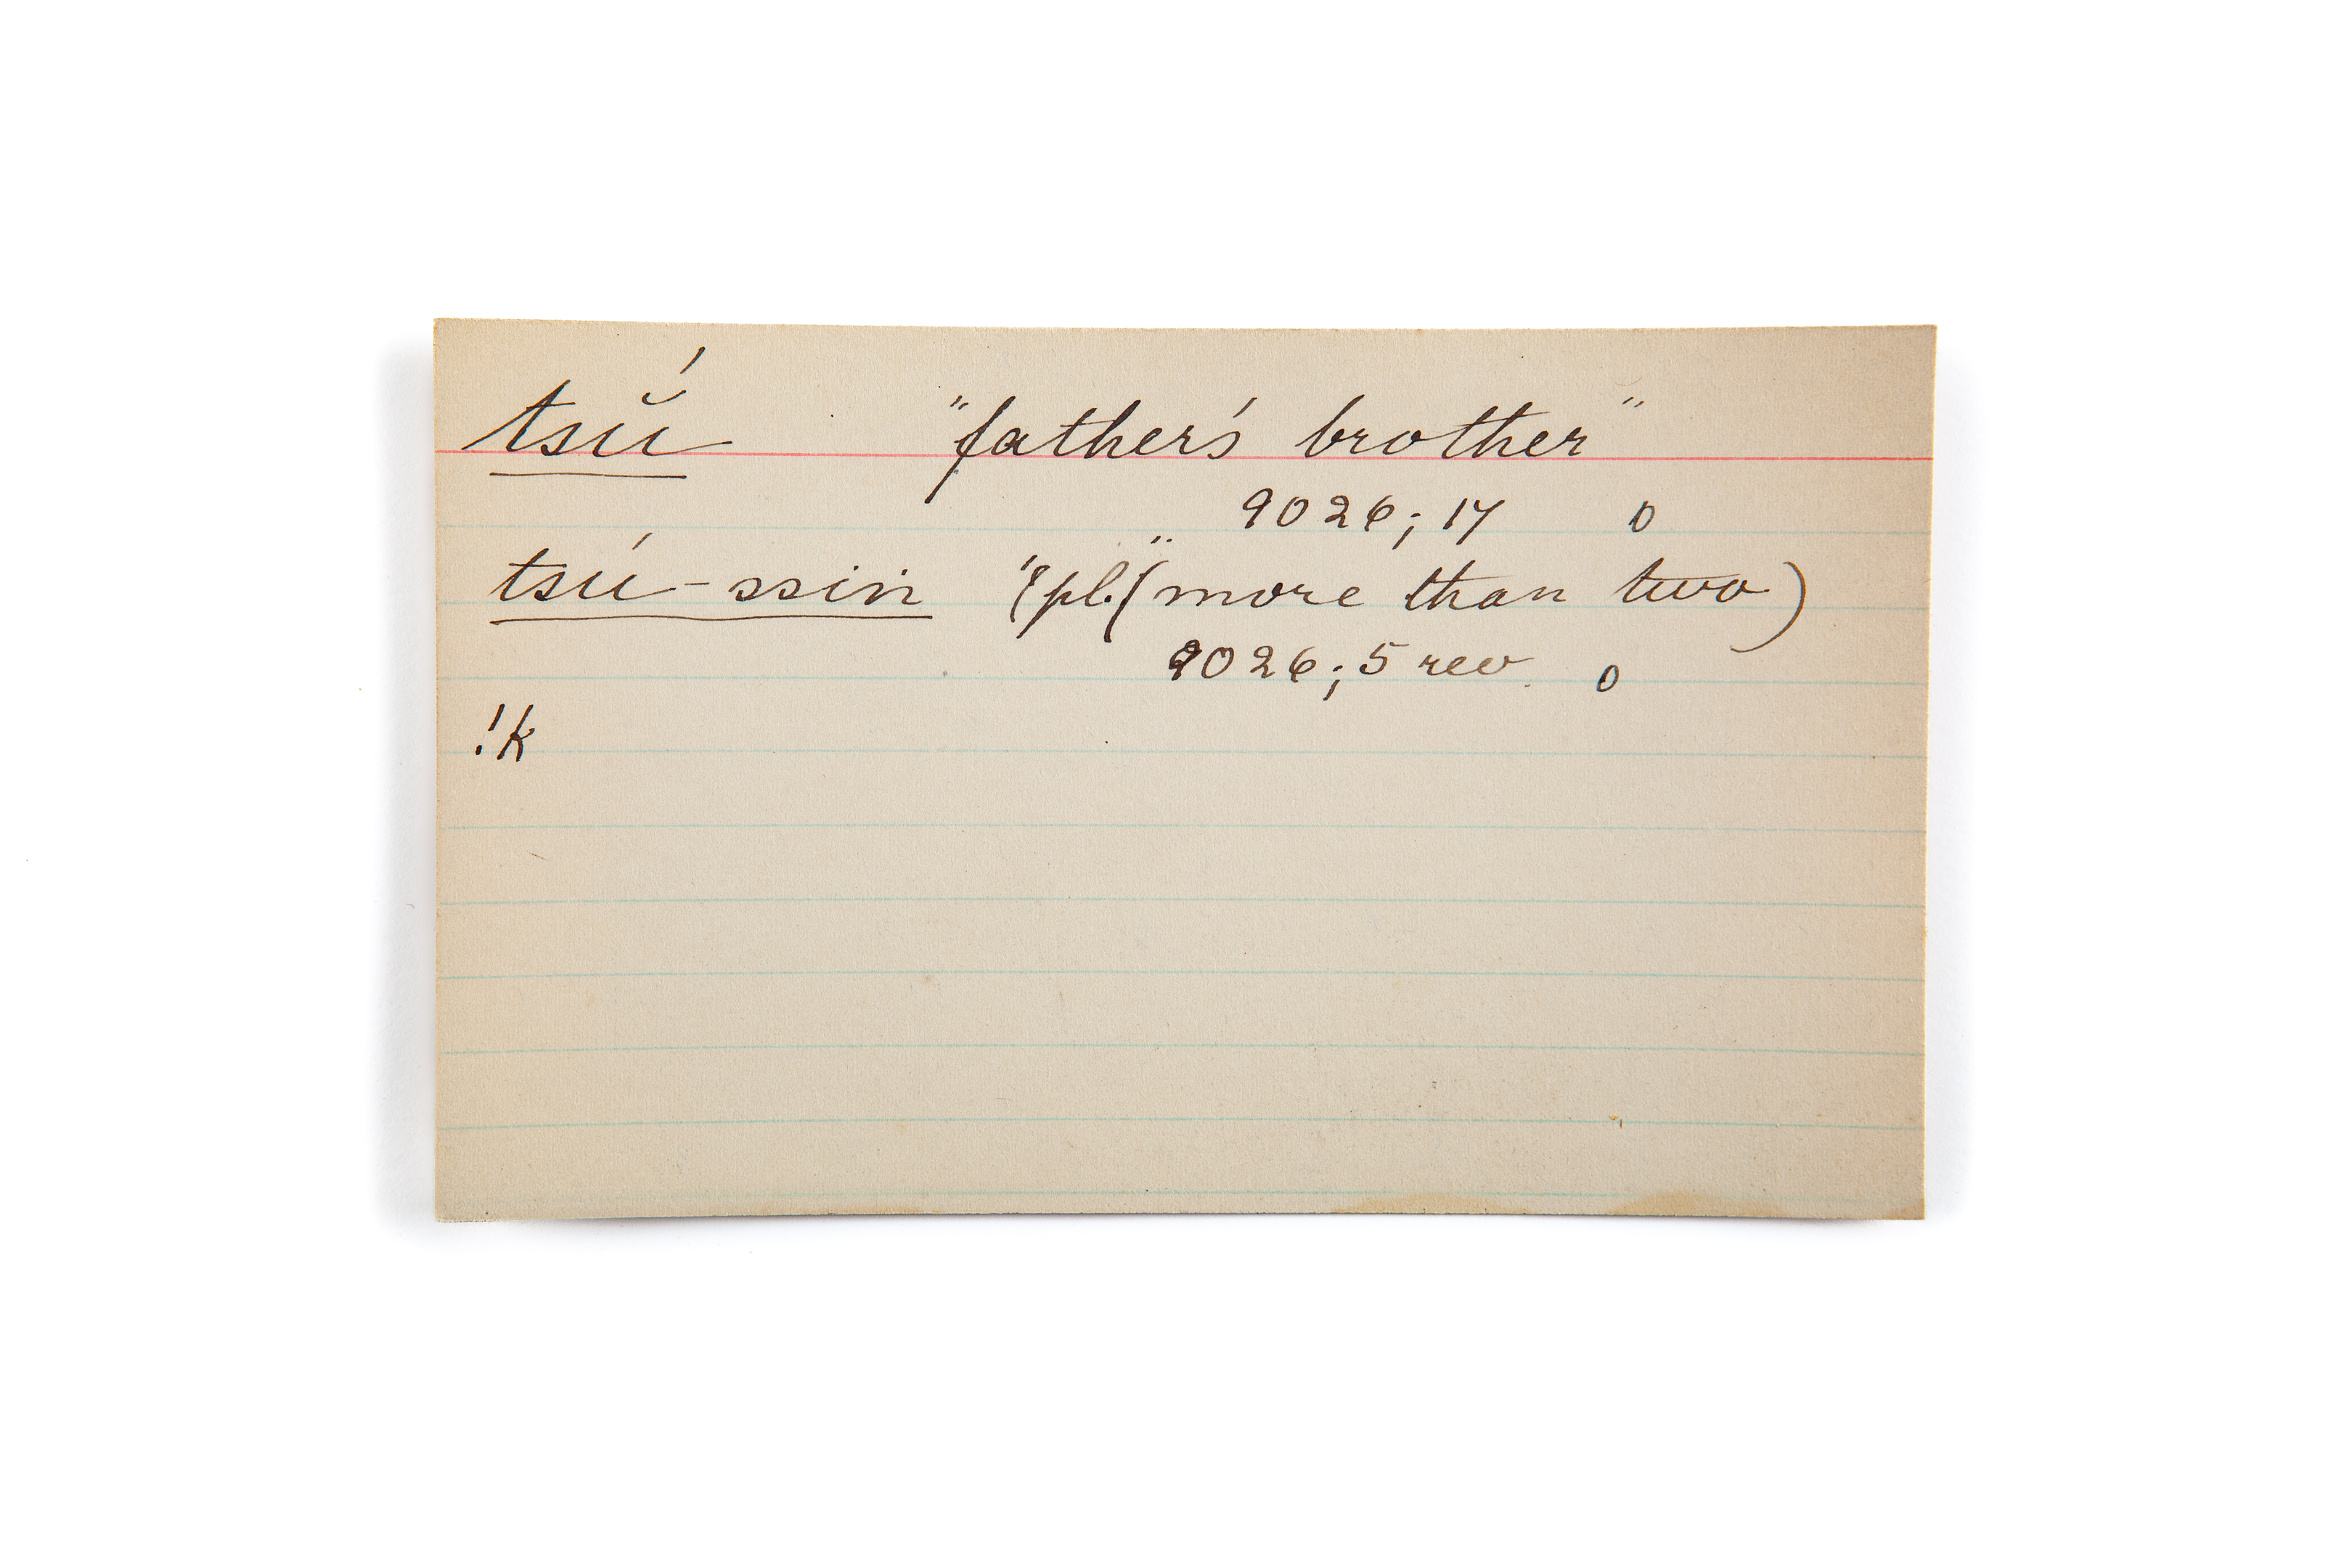 tsŭ́ "father's brother"
9026; 17 0
tsú-ssin "(pl.(more than two)
9026; 5 rev. 0
!k